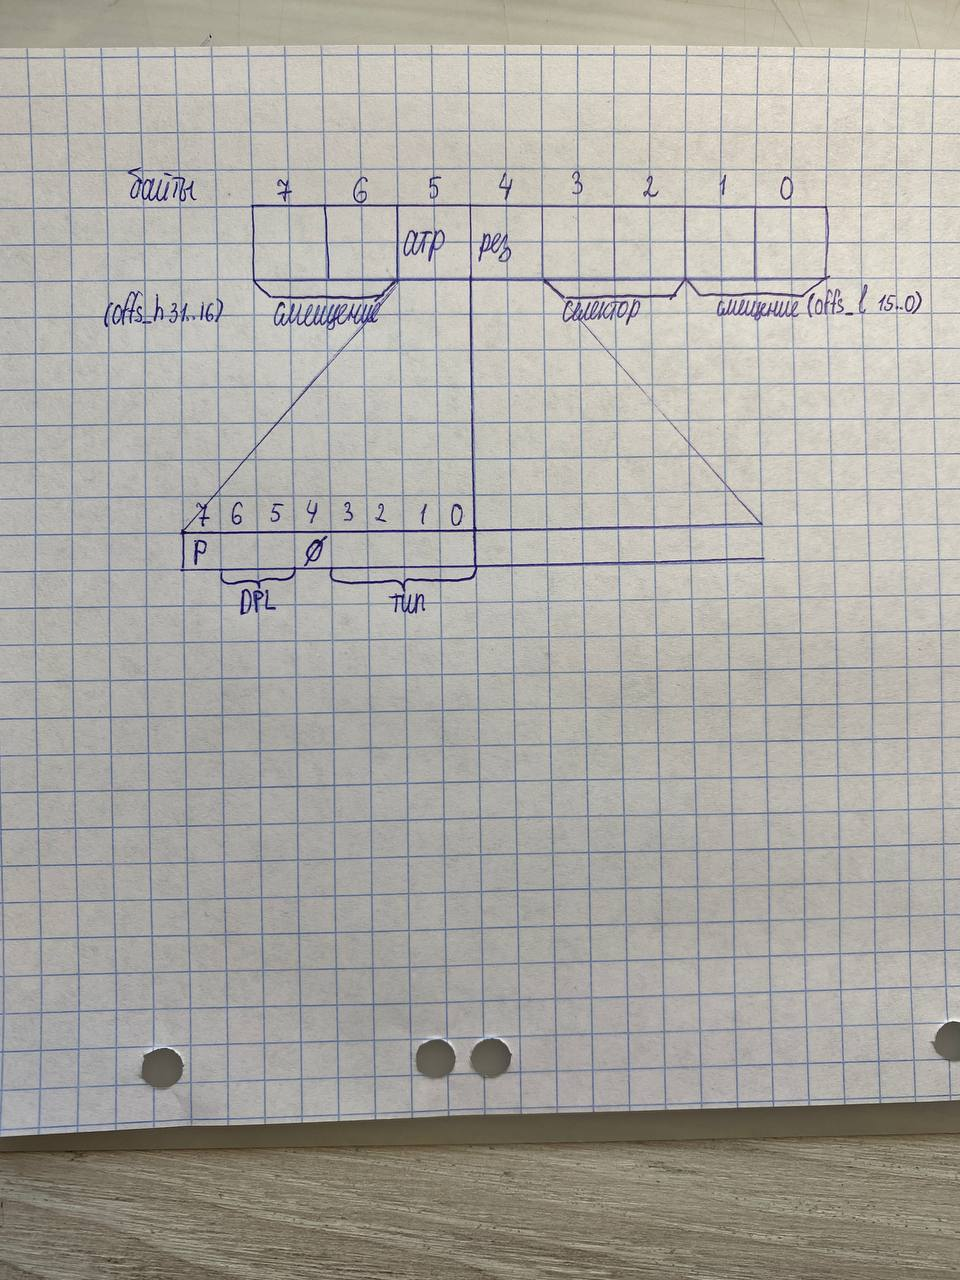 байты 7 6 5 4 3 2 1 0
атр рез
(offs_h 31..16) смещение селектор смещение (offs_l 15..0)
7 6 5 4 3 2 1 0
P Ø
DPL тип